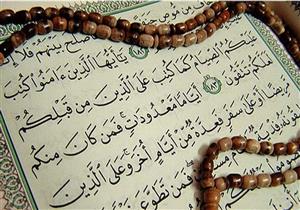 من موص
بينهم فلا
يَٰٓأَيُّهَا ٱلَّذِينَ ءَامَنُوا۟ كُتِبَ
عَلَيْكُمُ ٱلصِّيَامُ كَمَا كُتِبَ عَلَى ٱلَّذِينَ مِن قَبْلِكُمْ
لَعَلَّكُمْ تَتَّقُونَ ١٨٣ أَيَّامًا مَّعْدُودَٰتٍ فَمَن كَانَ مِنكُم
مَّرِيضًا أَوْ عَلَىٰ سَفَرٍ فَعِدَّةٌ مِّنْ أَيَّامٍ أُخَرَ وَعَلَى ٱلَّذِينَ
فَمَن تَطَوَّعَ